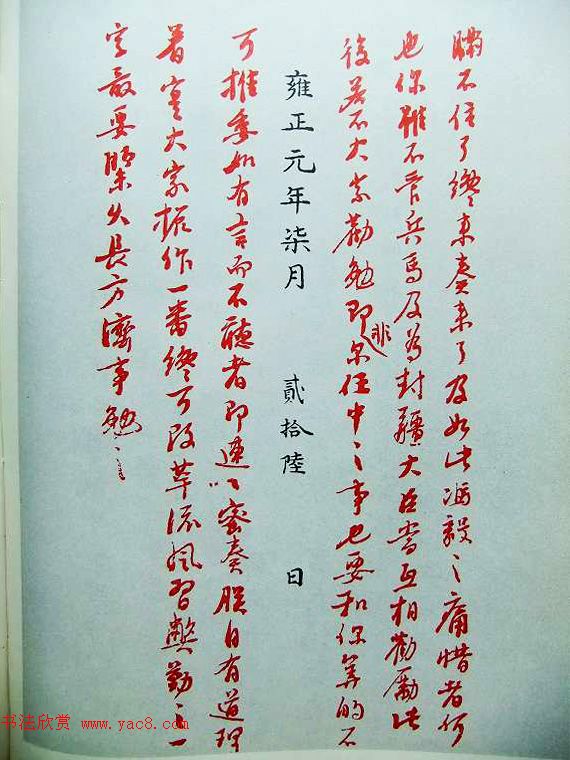 瞞不住了纔来奏来了及如此 之痛惜者何
也你雖不管兵馬及為封疆大臣當互相勸勵此
後若不大家勸勉即非尔任中之事也要和你算的不
雍正元年柒月 貳拾陸 日
可推委如有言而不聽者即速以密奏朕自有道理
着實大家振作一番纔可改革流風習弊勤之一
字最要緊久長方濟事勉之
书法欣赏 www.yac8.com